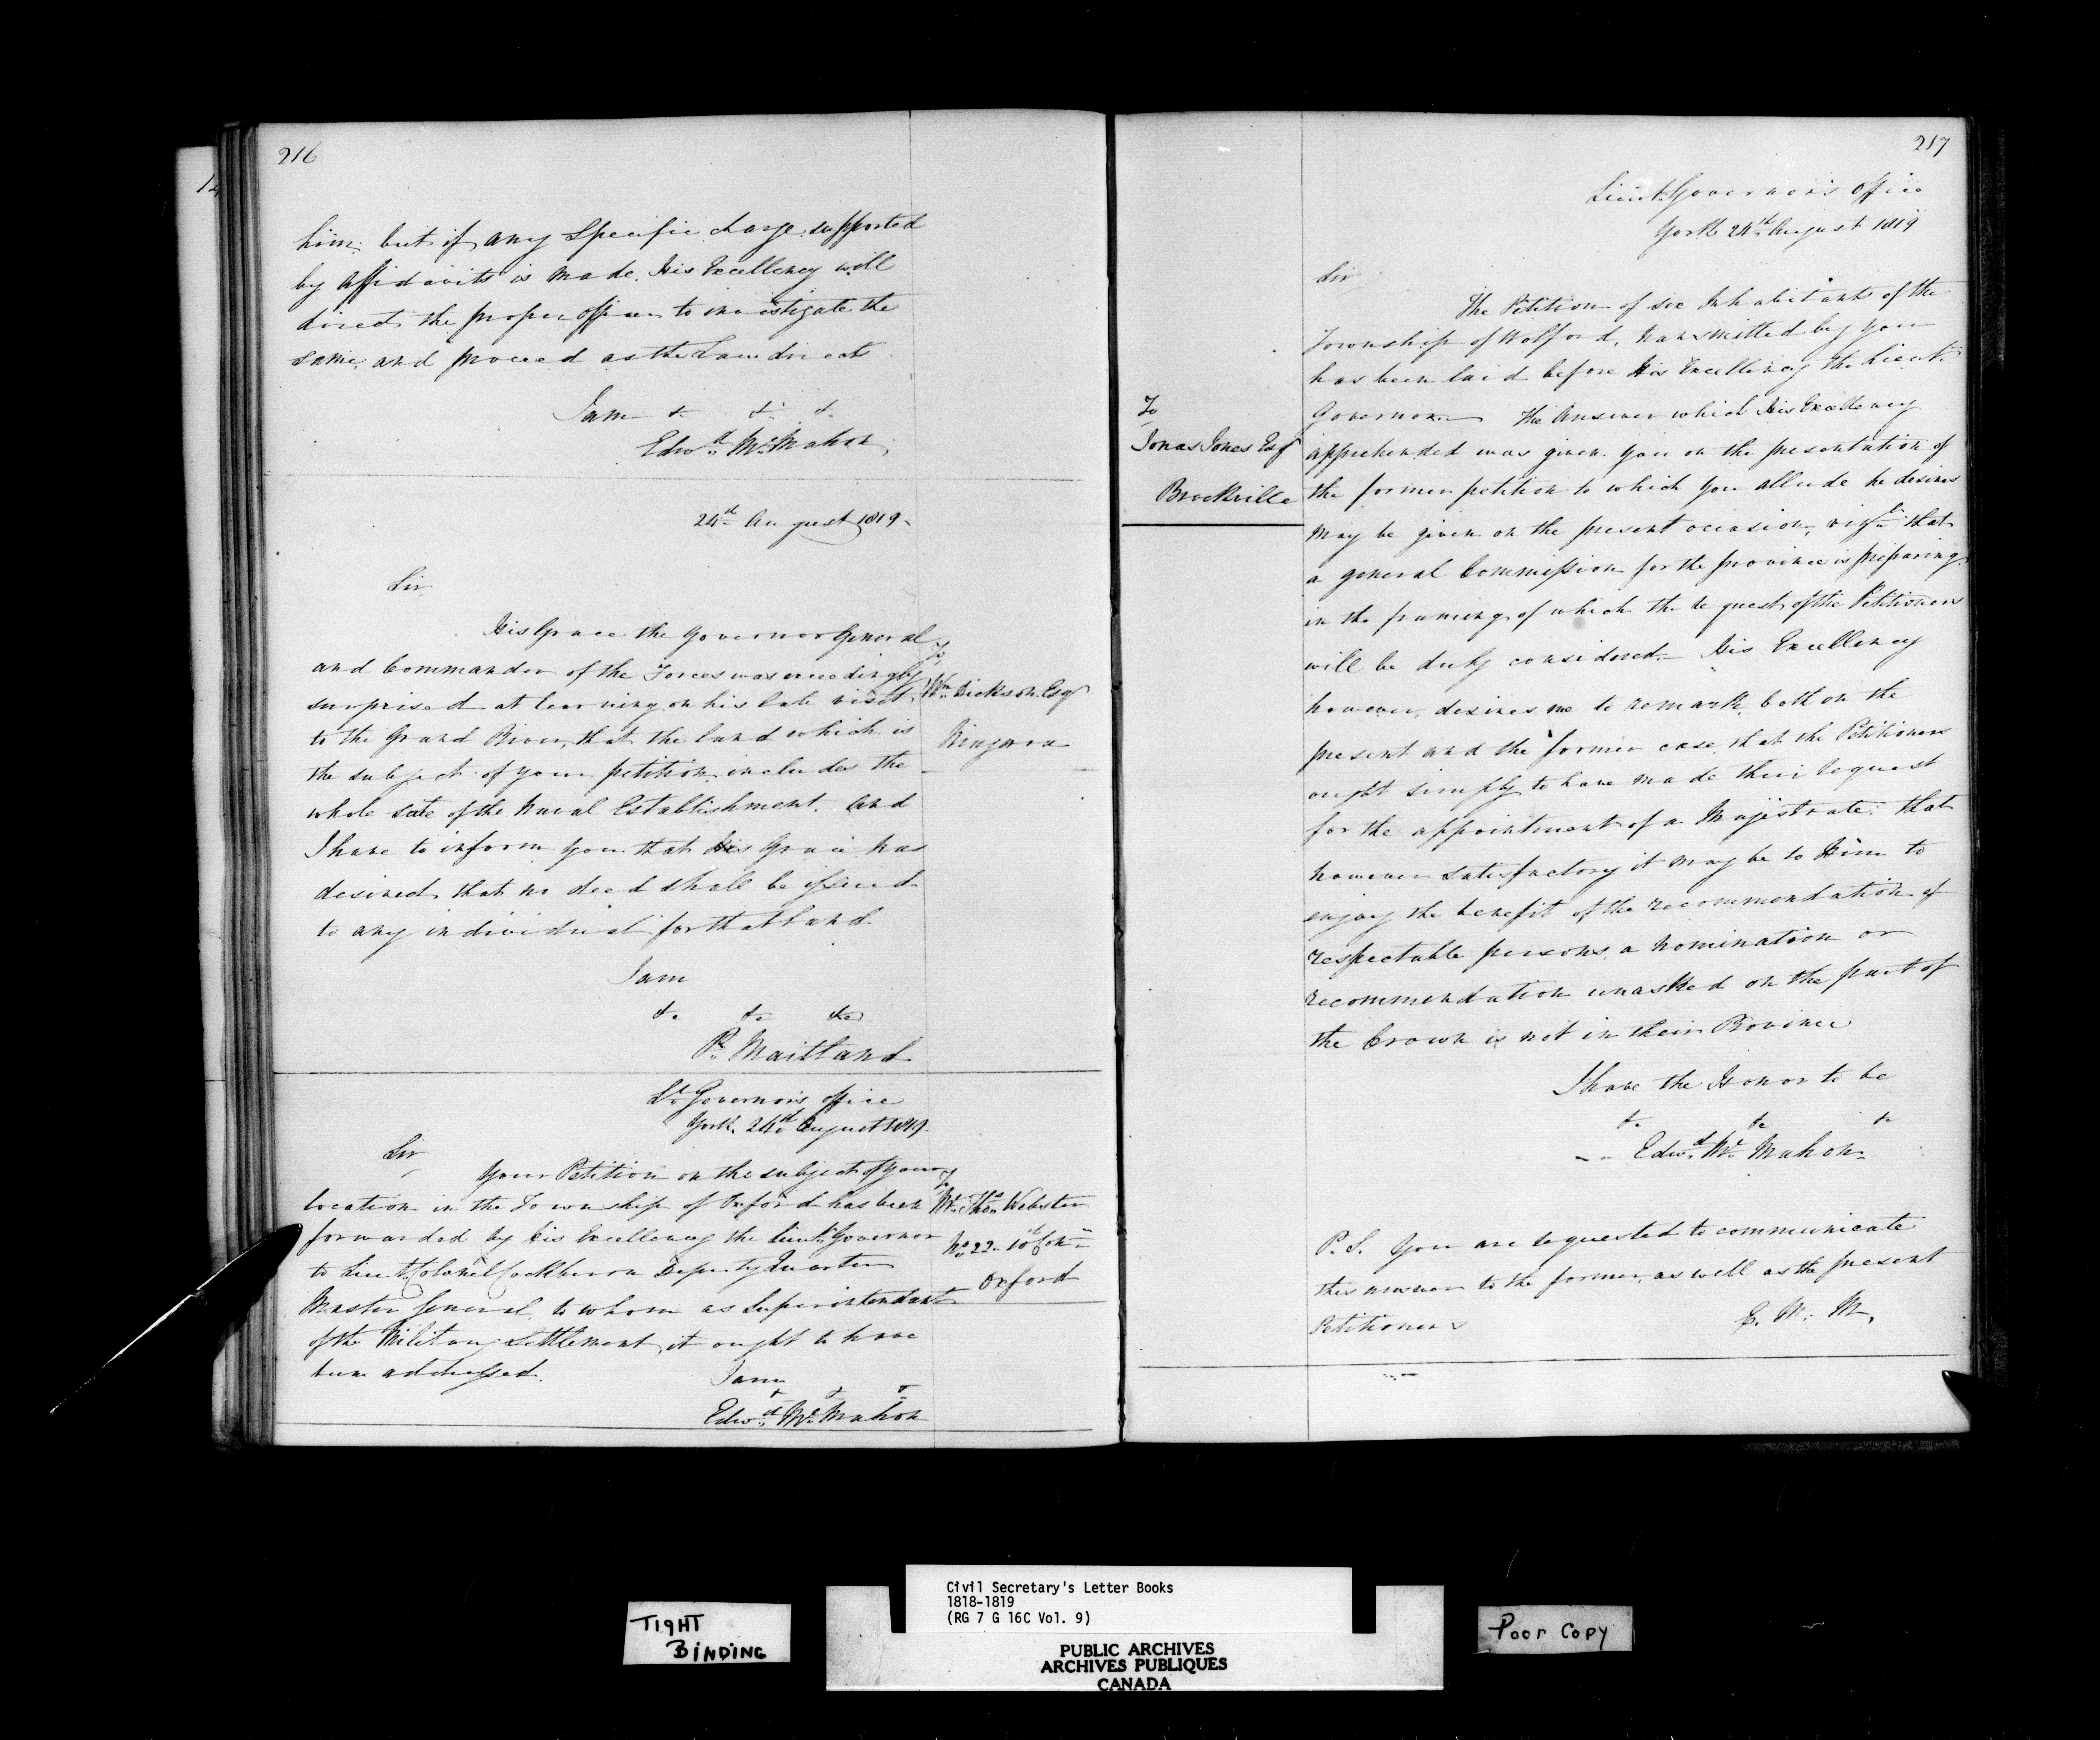 216
him; but if any Specific charge supported
by Affidavits is made, His Excellency will
direct the proper officer to investigate the
same, and proceed as the Law directs
I am &. &. &.
Edwd. McMahon
24th August 1819.
Sir
His Grace the Governor General
and Commander of the Forces was exceedingly
surprised at learning on his late visit
to the Grand River, that the land which is
the subject of your petition, includes the
whole site of the Naval Establishment. And
I have to inform you that His Grace has
desired that no deed shall be issued
to any individual for that land
I am
&c &c &c
P. Maitland
To
Wm. Dickson Esqr
Niagara
Lt. Governor's office
York, 24th August 1819.
Sir
Your Petition on the subject of your
location in the Township of Oxford has been
forwarded by his Excellency the Lieut. Governor
to Lieut. Colonel Cockburn Deputy Quarter
Master General, to whom as Superintendant
of the Military Settlement, it ought to have
been addressed.
I am
& & &
Edwd. McMahon
To
Mr. Thos. Webster
No. 22. 10th Con.
Oxford
217
Lieut. Governor's office
York 24th August 1819
Sir
The Petition of six Inhabitants of the
Township of Wolford, transmitted by you
has been laid before His Excellency the Lieut.
Governor. The Answer which His Excellency
apprehended was given you on the presentation of
the former petition to which you allude he desires
may be given on the present occasion, vizt. that
a general Commission for the province is preparing
in the framing of which the request of the Petitioners
will be duly considered. His Excellency
however, desires me to remark, both on the
present and the former case, that the Petitioners
ought simply to have made their request
for the appointment of a Majistrate: that
however satisfactory it may be to Him to
enjoy the benefit of the recommendation of
respectable persons, a nomination or
recommendation unasked on the part of
the Crown is not in their Province
I have the Honor to be
&c &c &c
Edwd. McMahon
To
Jonas Jones Esqr
Brockville
P.S. You are requested to communicate
this answer to the former, as well as the present
Petitioners
E. M. M.
TIGHT
BINDING
Civil Secretary's Letter Books
1818-1819
(RG 7 G 16C Vol. 9)
PUBLIC ARCHIVES
ARCHIVES PUBLIQUES
CANADA
Poor Copy